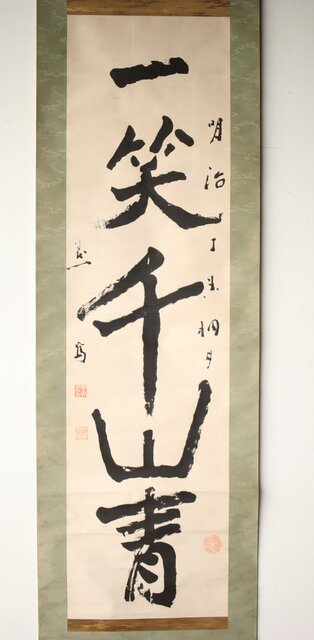 明治丁未桐月
一笑千山青